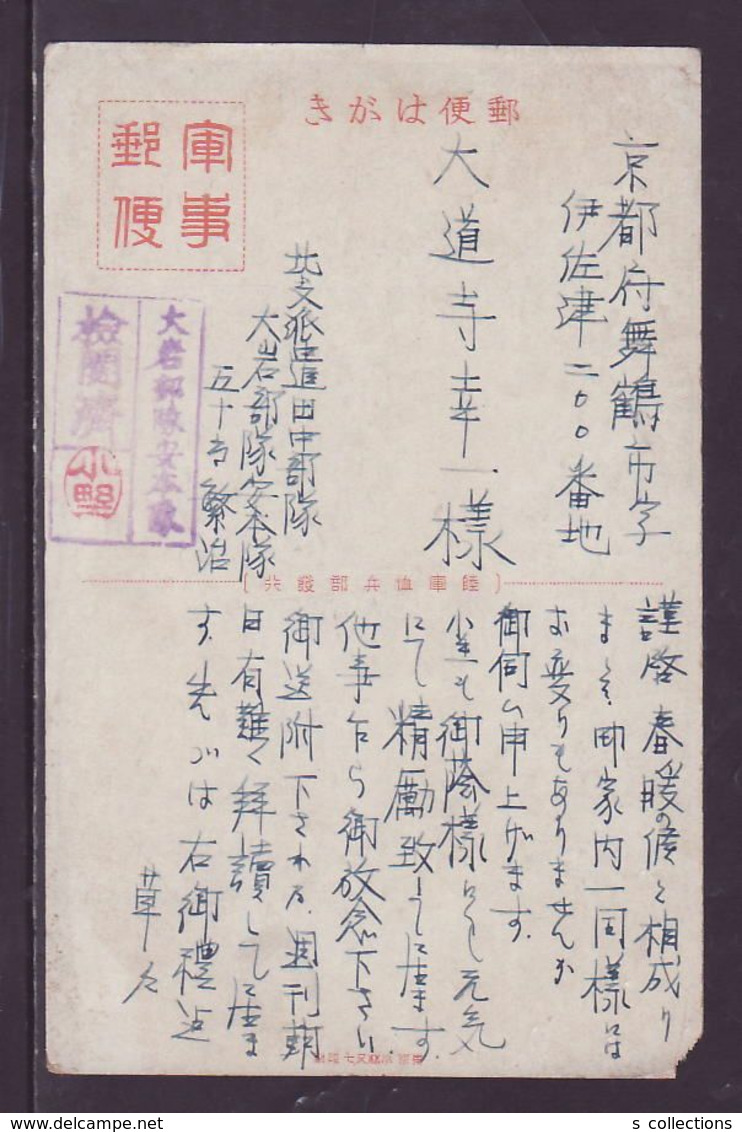 郵便はがき
軍事郵便
京都府舞鶴市字
伊佐津二〇〇番地
大道寺幸一様
北支派遣田中部隊
大岩部隊安本隊
五十方繁治
大岩部隊安本隊
検閲済
小野
(陸軍恤兵部發行)
謹啓 春暖の候と相成り
まして御家内一同様には
お変りもありませんか
御伺ひ申上げます。
小生も御蔭様にて元気
にて精励致して居ます。
他事乍ら御放念下さい
御送附下される週刊朝
日有難く拜讀して居ま
す。先づは右御禮迄
草々
s collections